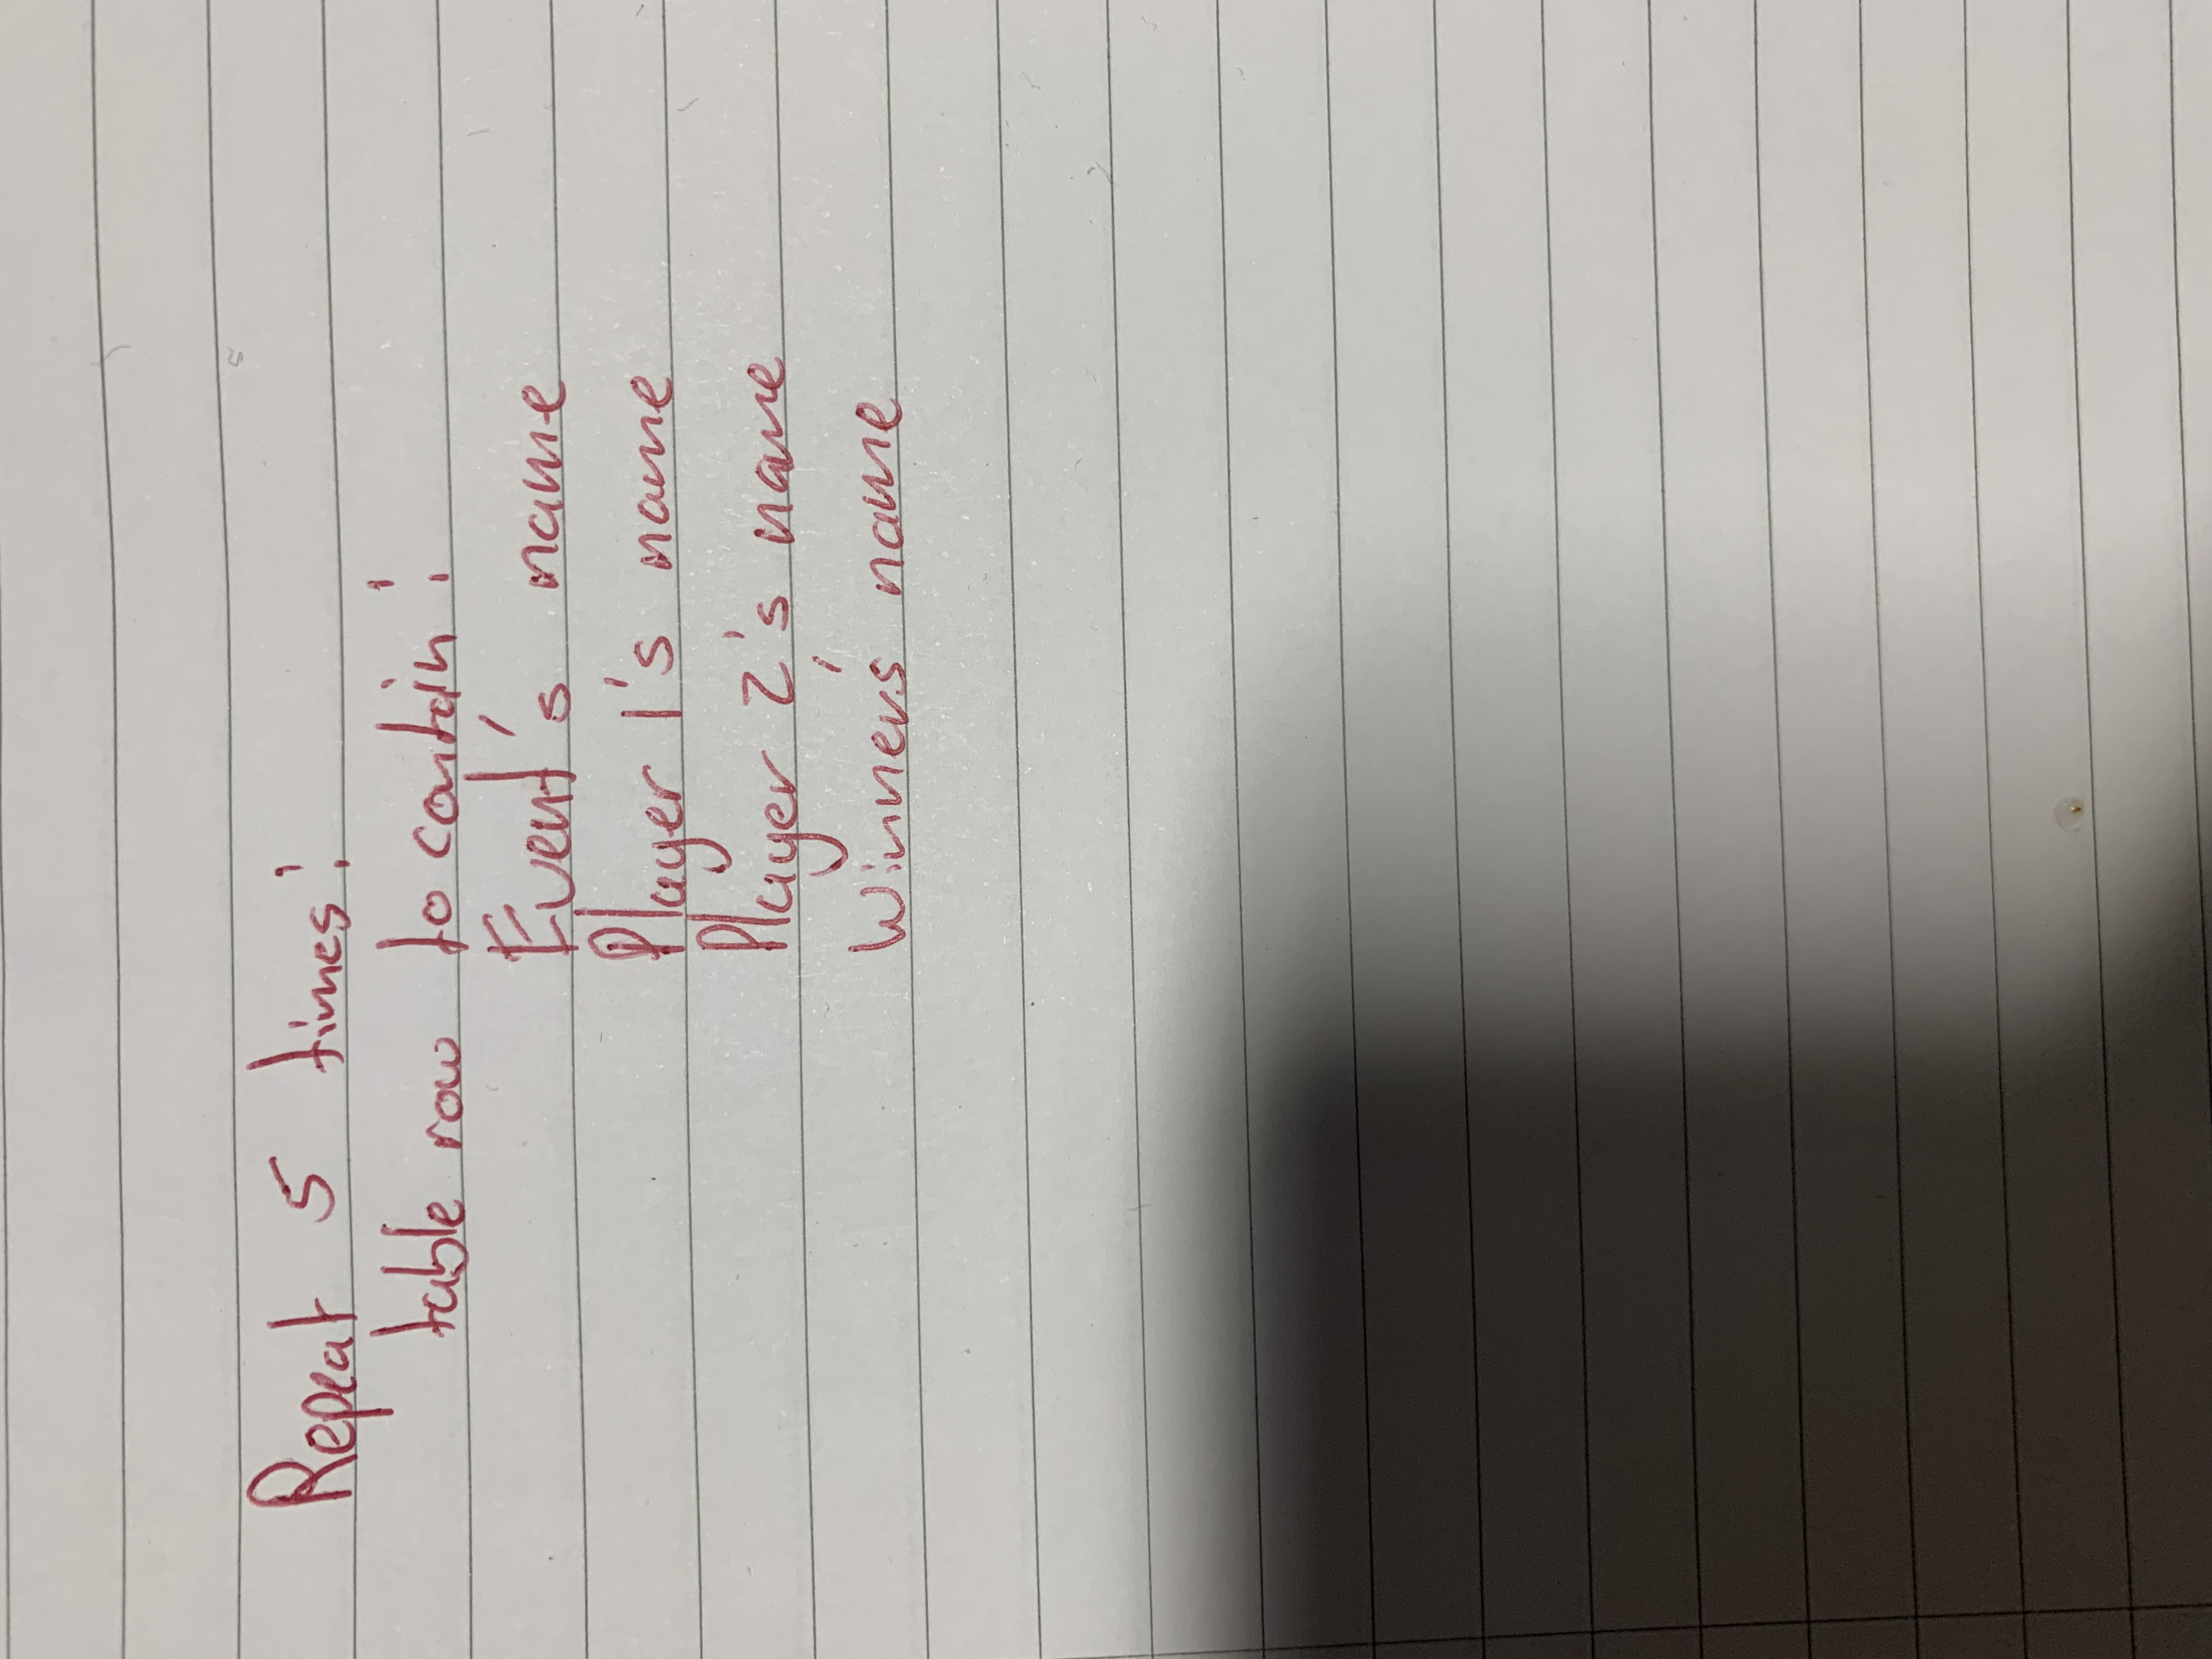 Repeat 5 times:
table row to contain:
Event's name
Player 1's name
Player 2's name
Winner's name